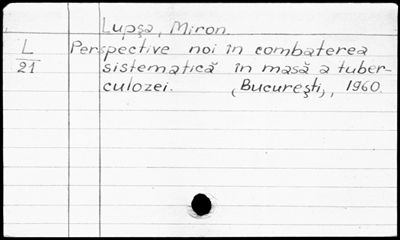 Lupşa, Miron.
L
21
Perspective noi în combaterea
sistematică în masă a tuber-
culozei. (Bucureşti), 1960.